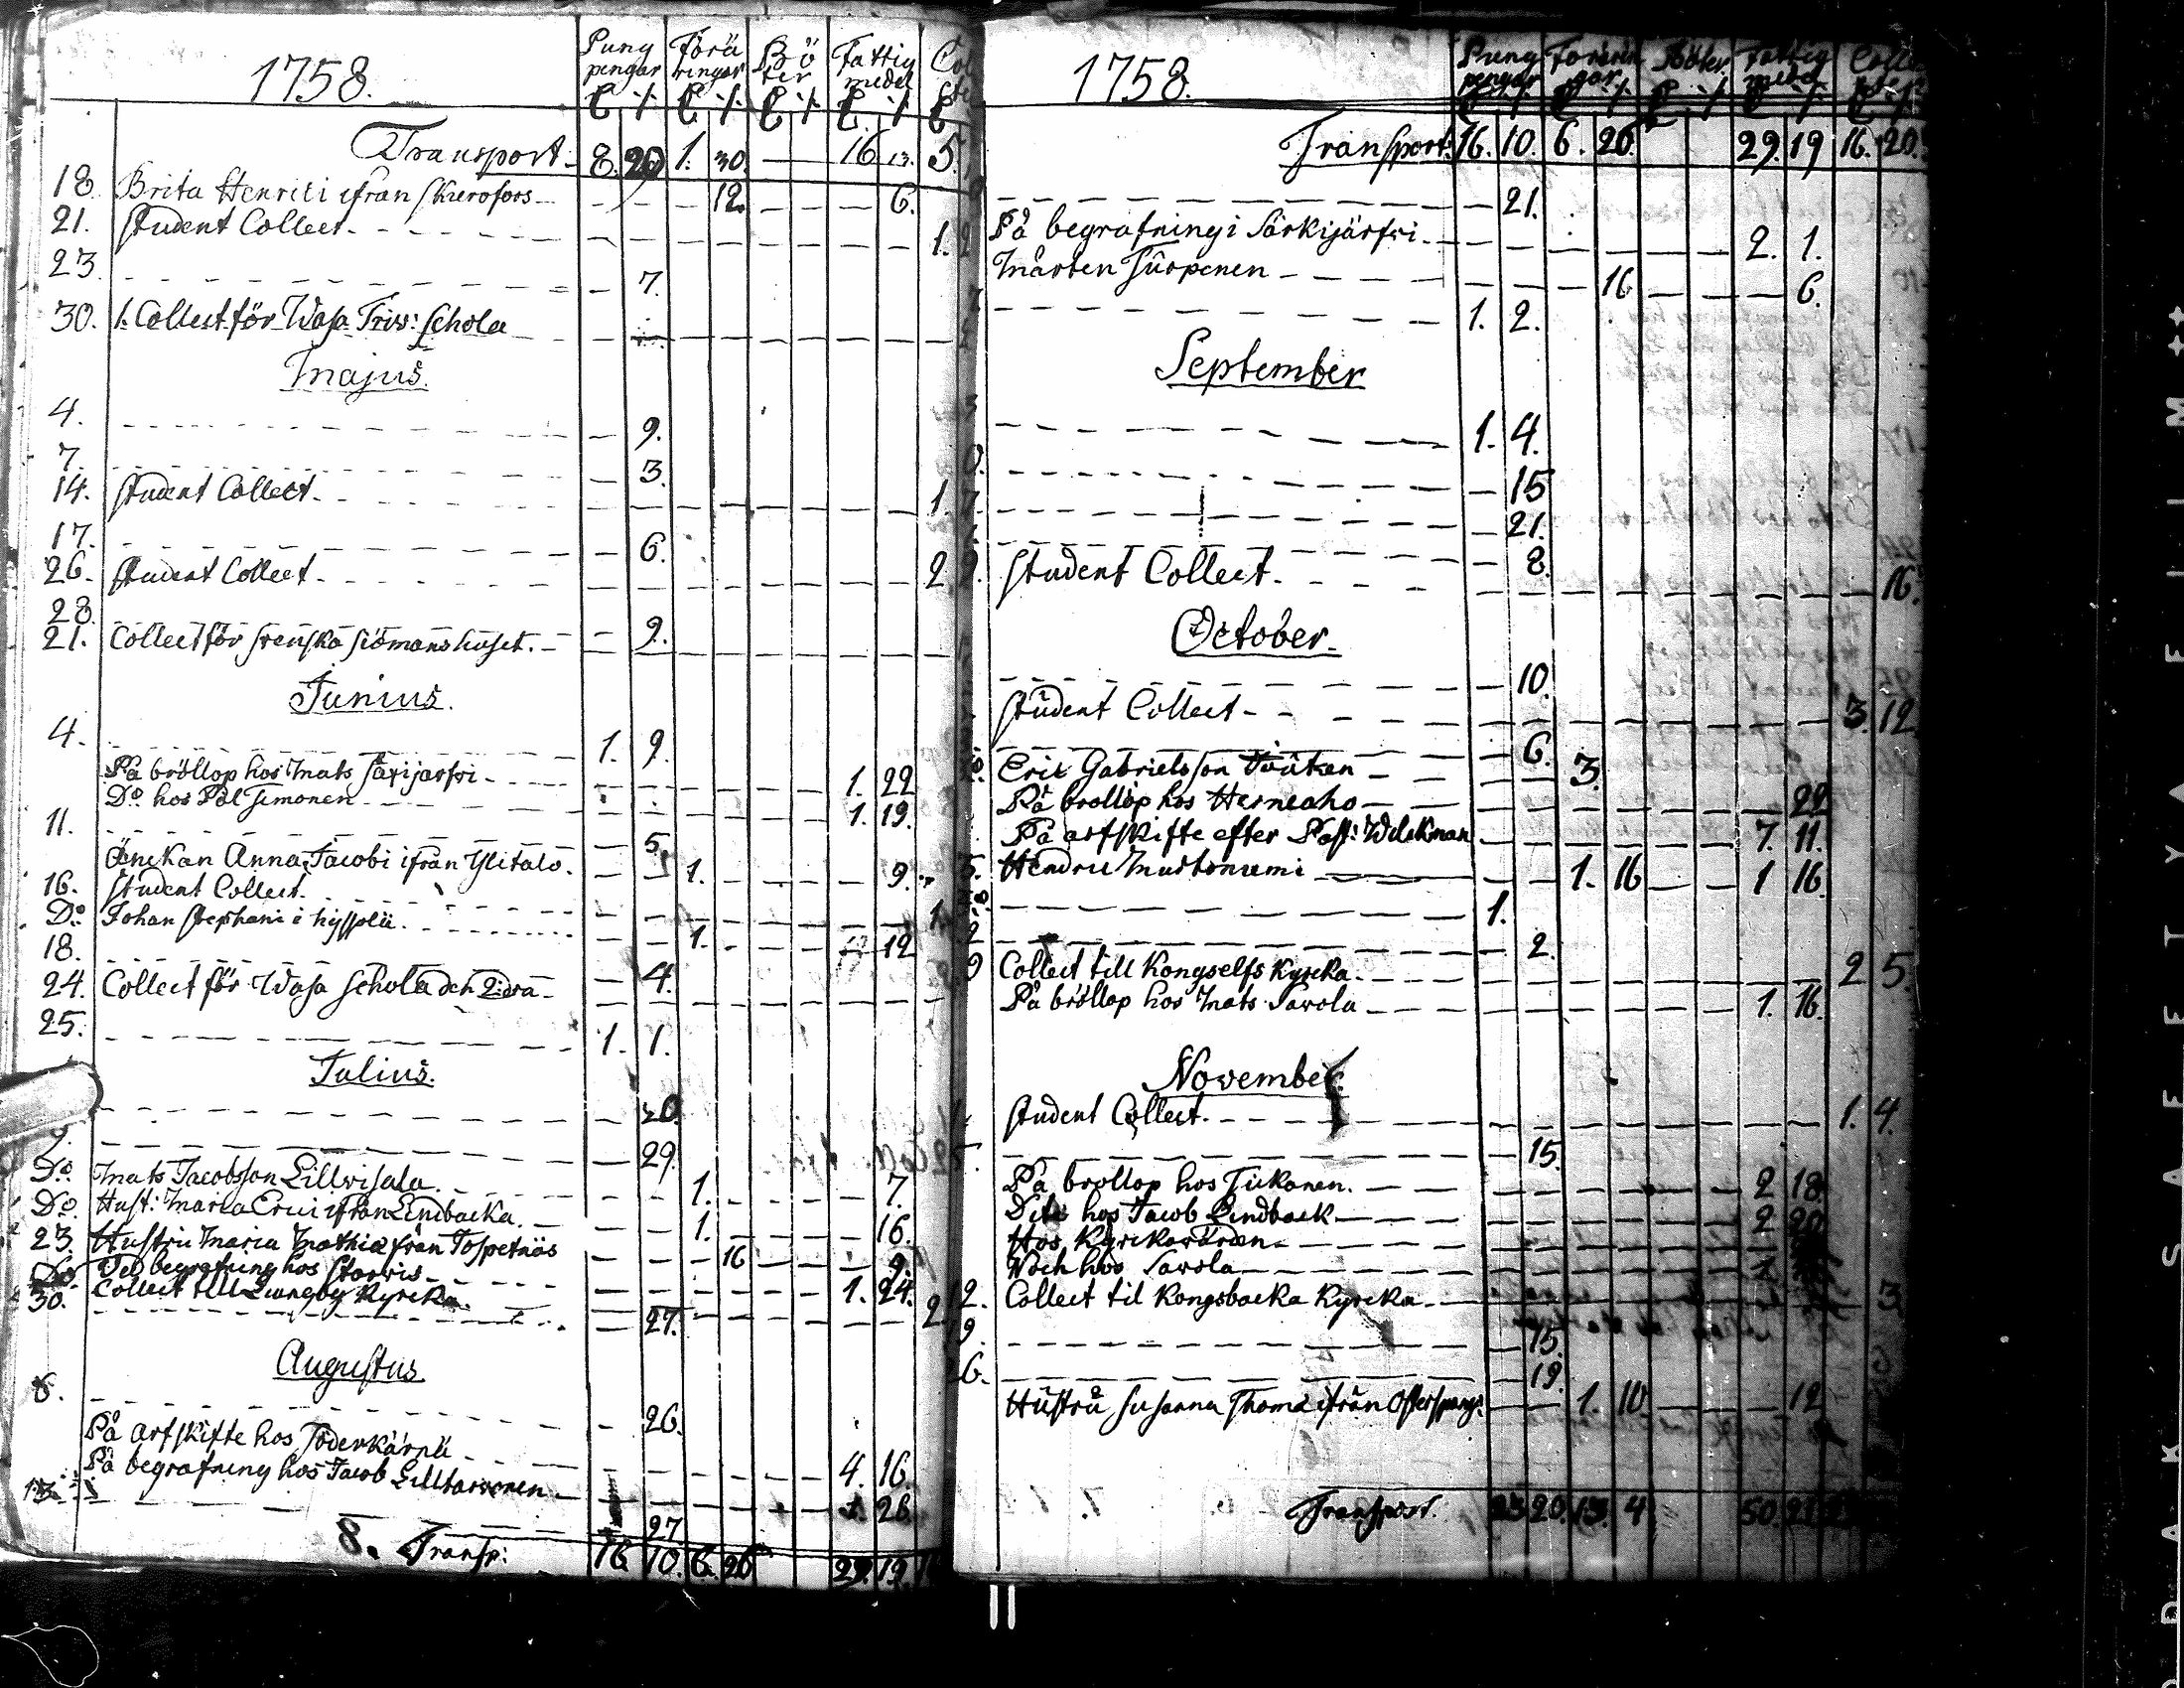 1758.
Pung pengar Förä ringar Bö ter Fattig medel
Transport. 8. 20 1. 30. — 16 13. 5.
18. Brita Henrici ifrån 12. 6.
21. Student Collect. 1.
23. 7.
30. 1. Collect för Wasa Triv: Schola
Majus.
4. 9.
7. 3.
14. Student Collect. 1.
17. 6.
26. Student Collect. 2
28. 9.
21. Collect för Svenska Siömanshuset.
Junius.
4. 1. 9.
På bröllop hos Mats Särkijärfvi 1. 22
Do. hos Pål Simonen 1. 19.
11. 5.
Änckan Anna Jacobi ifrån Ylitalo. 1. 9.
16. Student Collect. 1
Do. Johan Stephani i 1. 12
18. 4.
24. Collect för Wasa Schola den 2:dra
25. 1. 1.
Julius.
20.
9. 29.
Do. Mats Jacobsson Lillvisala 1. 7.
Do. Hust: Maria Erici ifrån Lindbacka. 1. 16.
23. Hustru Maria Mathiæ från 16 9.
Do. Ved begrafning hos 1. 24.
30. Collect till Liungby Kyrcka. 2
27.
Augustus
6. 26.
På arfskifte hos Söderkärnä 4. 16.
På begrafning hos Jacob 1. 26.
13. 27
8. Transp: 16 10. 6. 26 29. 19.
1758.
Pung pengar Förärin gar Böter Fattig medel Collec
Transport: 16. 10. 6. 26. 29. 19 16. 20.
21.
På begrafning i Särkijärfvi 2. 1.
Mårten 16 6.
1. 2.
September
1. 4.
15
21.
8.
Student Collect. 16.
October.
10.
Student Collect 3. 12
6.
Eric Gabrielsson 3.
På bröllop hos Herneaho 22
På arfskifte efter Past: Welckman 7. 11.
Hendric Murtoniemi 1. 16 1 16.
1.
2.
Collect till Kongselfs Kyrcka. 2 5.
På bröllop hos Mats Savola 1. 16.
November.
Student Collect. 1. 4.
15.
På bröllop hos Tickanen. 2 18.
Dito hos Jacob Lindback 2 20
Hos Kyrckovärden
Noch hos Savola
2. Collect til Kongsbacka Kyrcka 3
9. 15.
6. 19.
Hustru Susanna Thomæ ifrån 1. 10 12
Transport. 23 20. 13. 4 50. 21